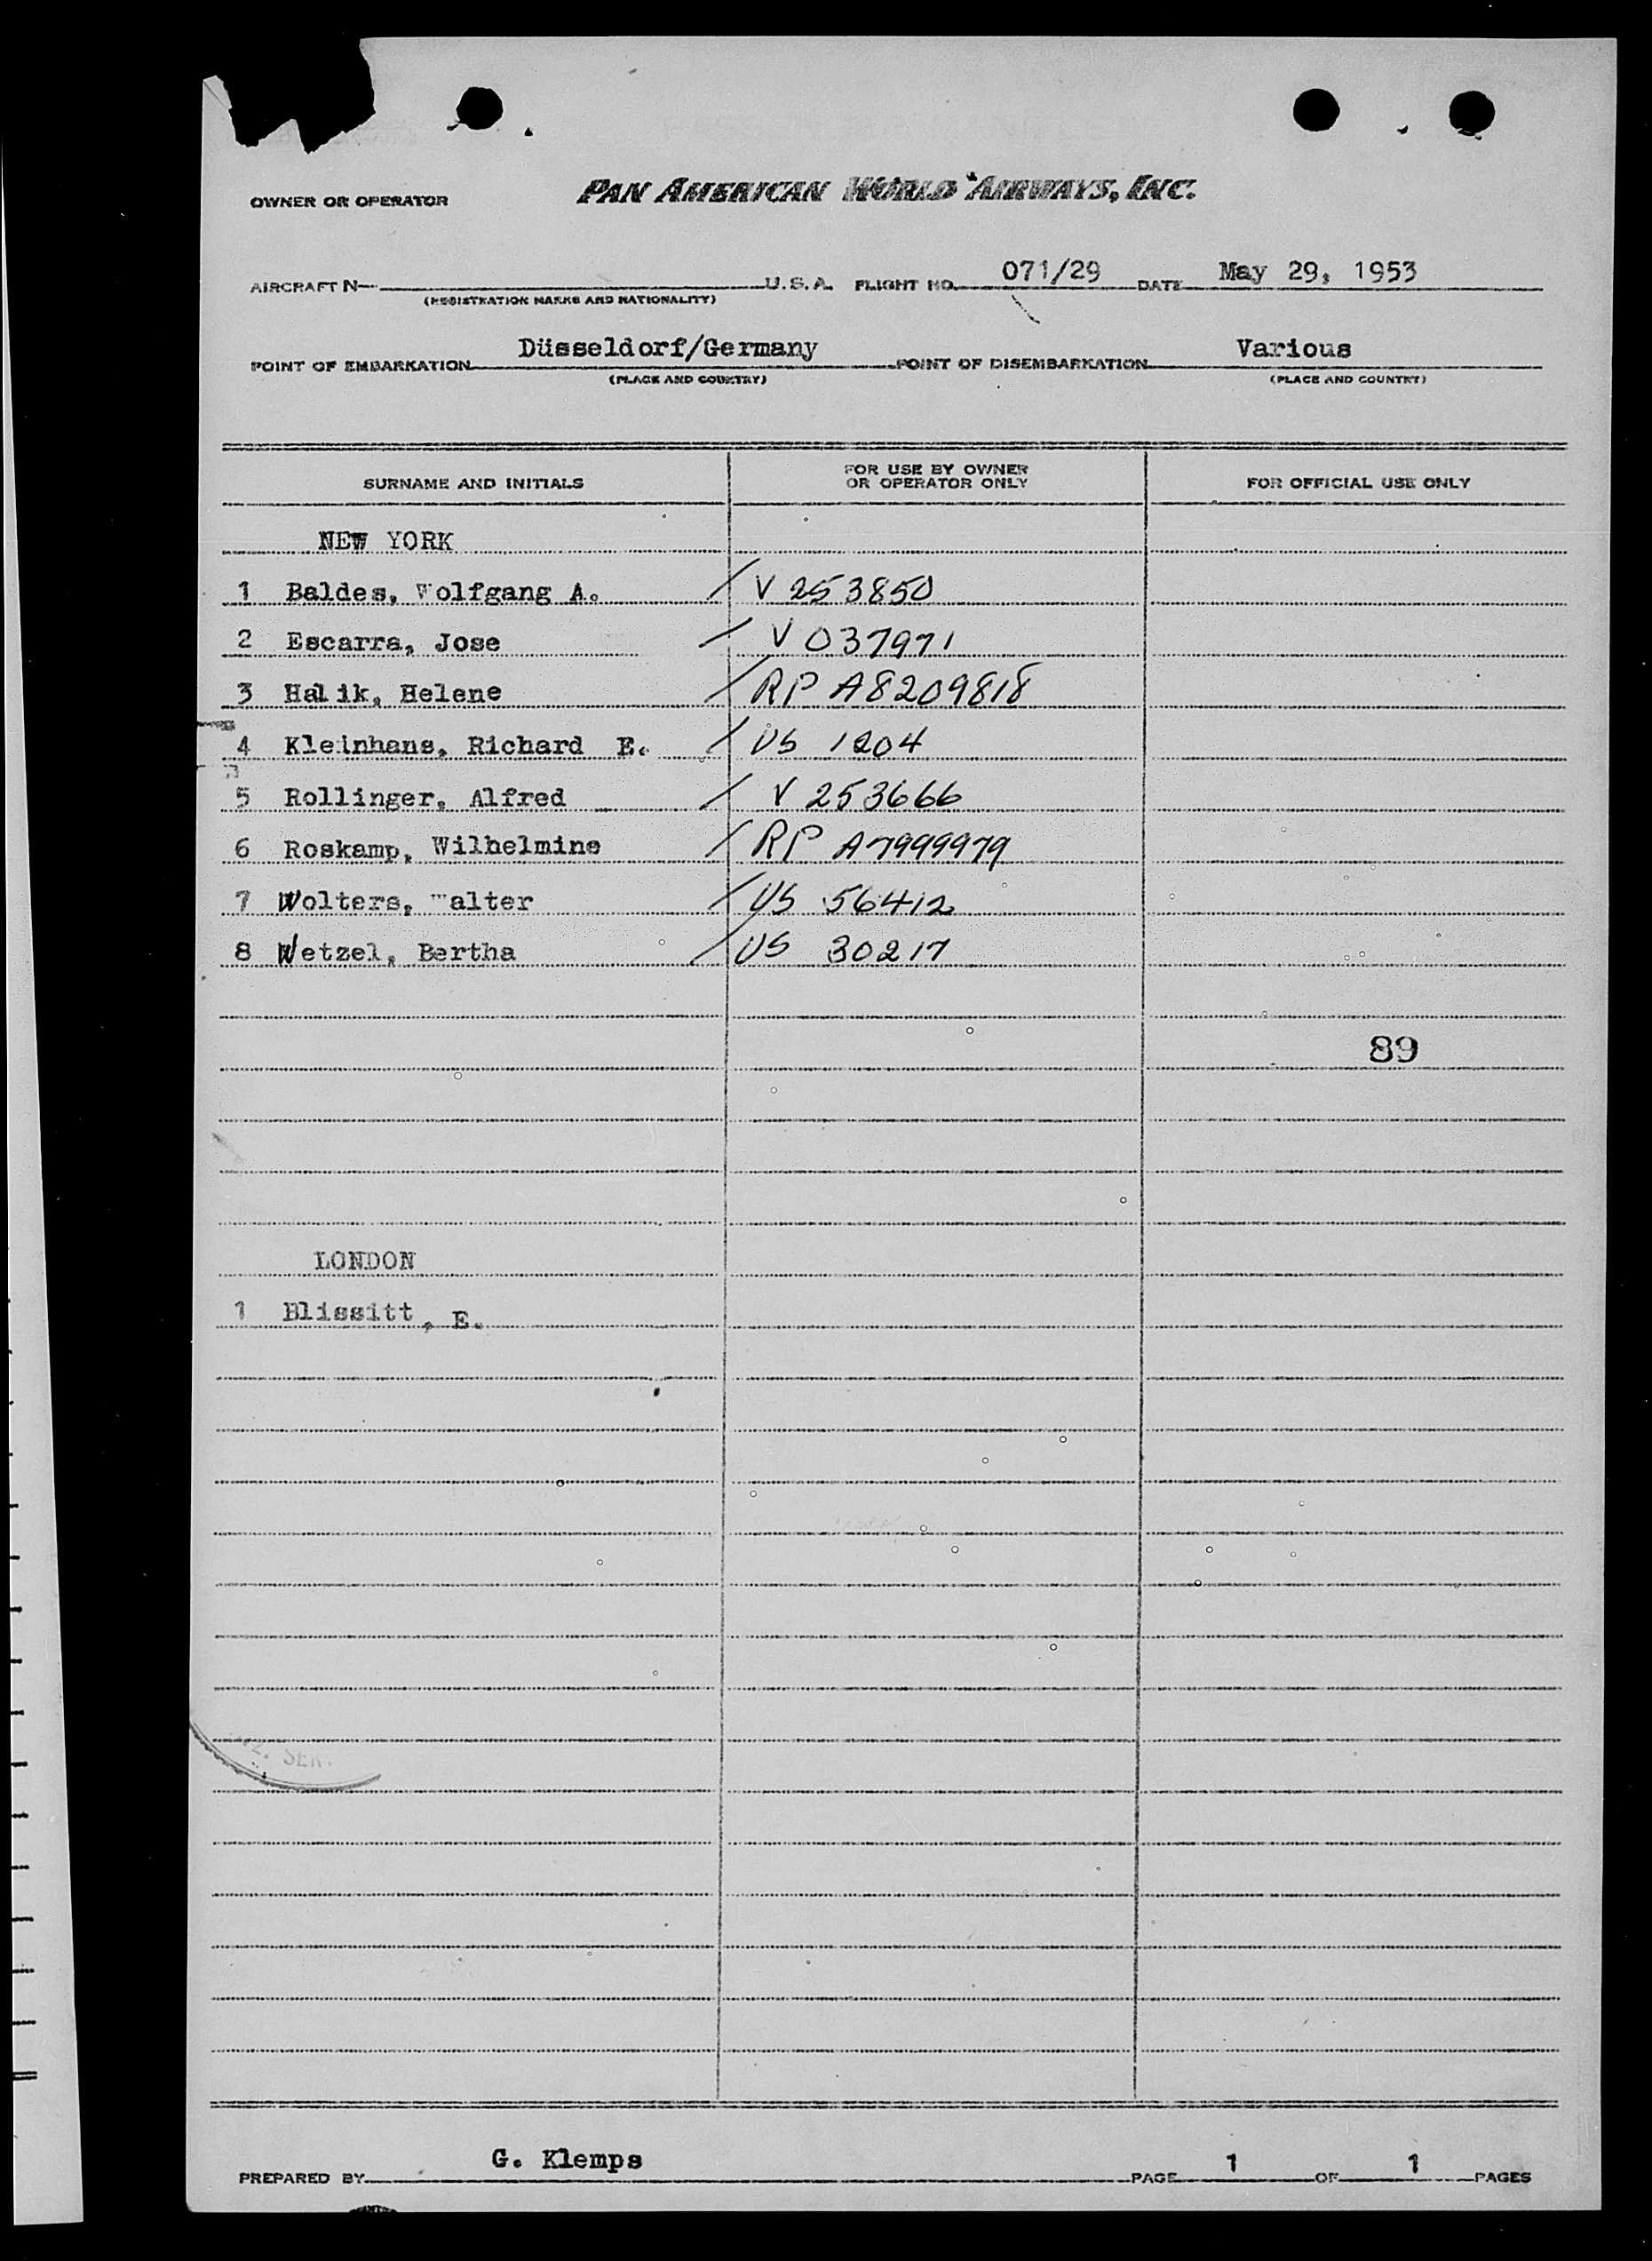 OWNER OR OPERATOR PAN AMERICAN WORLD AIRWAYS, INC.
AIRCRAFT N— U.S.A. FLIGHT NO. 071/29 DATE May 29, 1953
(REGISTRATION MARKS AND NATIONALITY)
POINT OF EMBARKATION Düsseldorf/Germany POINT OF DISEMBARKATION Various
(PLACE AND COUNTRY) (PLACE AND COUNTRY)
SURNAME AND INITIALS FOR USE BY OWNER OR OPERATOR ONLY FOR OFFICIAL USE ONLY
NEW YORK
1 Baldes, Wolfgang A. / V 253850
2 Escarra, Jose / V 037971
3 Halik, Helene / RP A8209818
4 Kleinhans, Richard E. / US 1204
5 Rollinger, Alfred / V 253666
6 Roskamp, Wilhelmine / RP A7999979
7 Wolters, Walter / US 56412
8 Wetzel, Bertha / US 30217
89
LONDON
1 Blissitt, E.
SER.
PREPARED BY G. Klemps PAGE 1 OF 1 PAGES